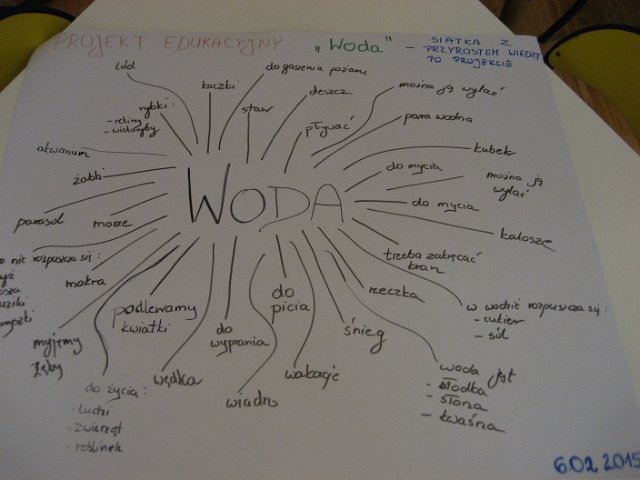 PROJEKT EDUKACYJNY „Woda" – SIATKA Z
PRZYROSTEM WIEDZY
PO PROJEKCIE
lód
kaczki
do gaszenia pożaru
deszcz
można ją wylać
rybki:
- rekiny
- wieloryby
staw
pływać
para wodna
akwarium
kubek
żabki
do mycia
można ją
wylać
WODA
parasol
morze
do mycia
kalosze
nie rozpuszcza się:
mokra
podlewamy
kwiatki
do
wyprania
do
picia
śnieg
rzeczka
trzeba zakręcać
kran
w wodzie rozpuszcza się:
- cukier
- sól
myjemy
zęby
do życia:
- ludzi
- zwierząt
- roślinek
wędka
wiadro
wakacje
woda jest
- słodka
- słona
- kwaśna
6.02.2015